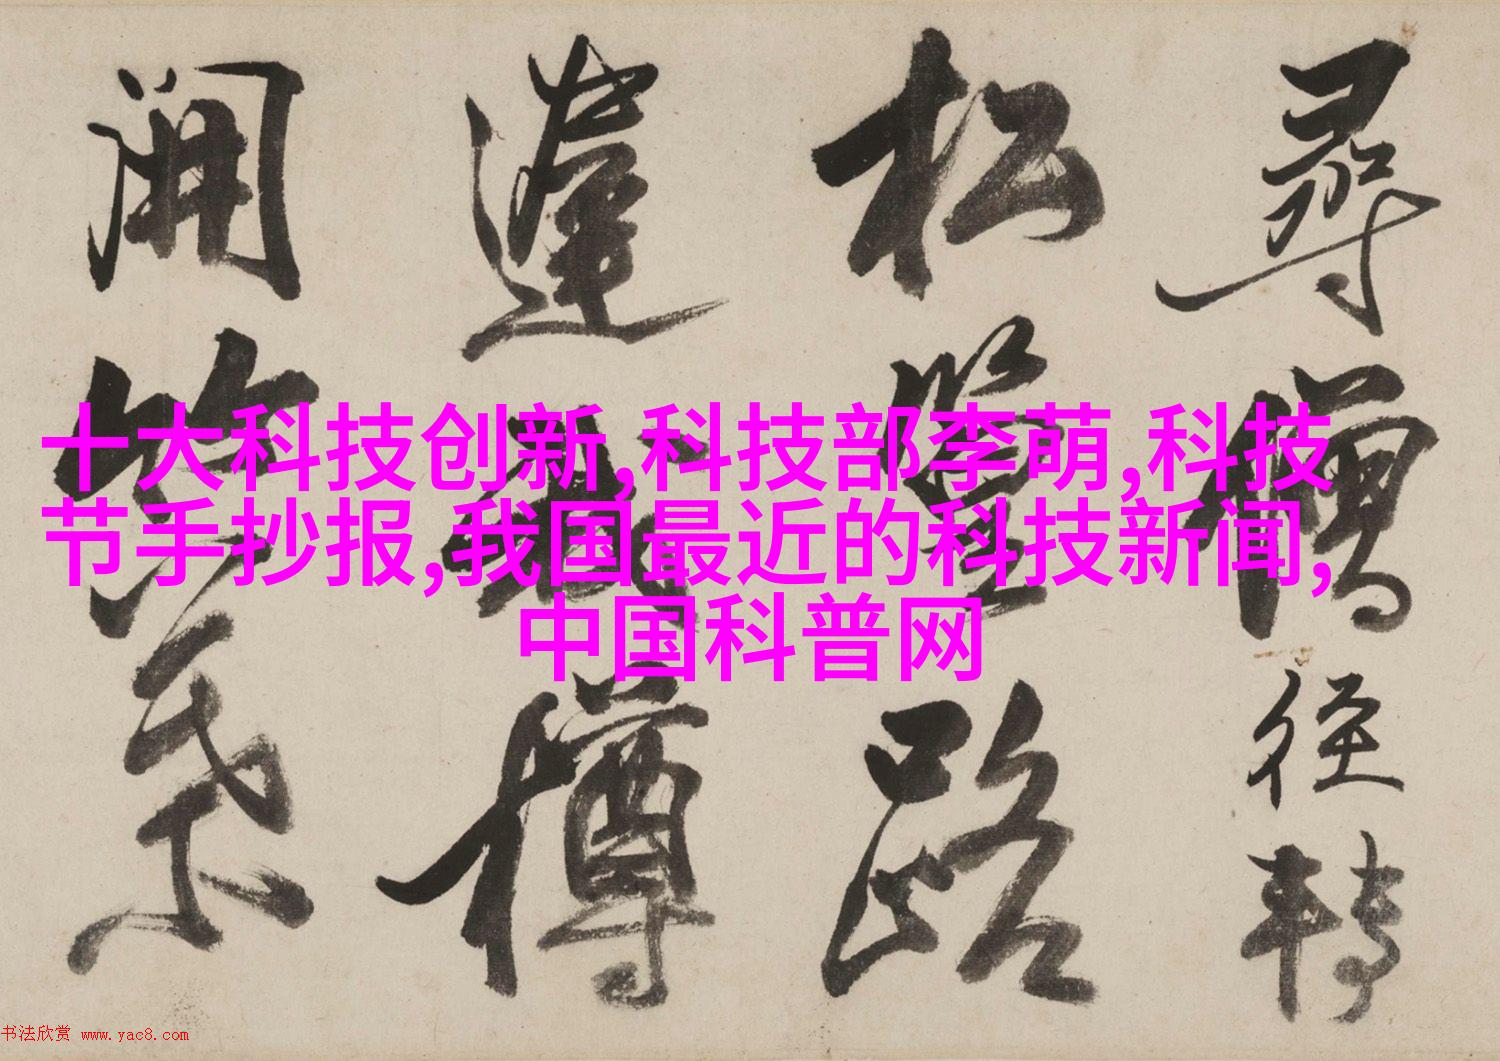 尋僧径轉
松堂路
蓬
樽
開
十大科技创新,科技部李萌,科技
节手抄报,我国最近的科技新闻,
中国科普网
书法欣赏 www.yac8.com